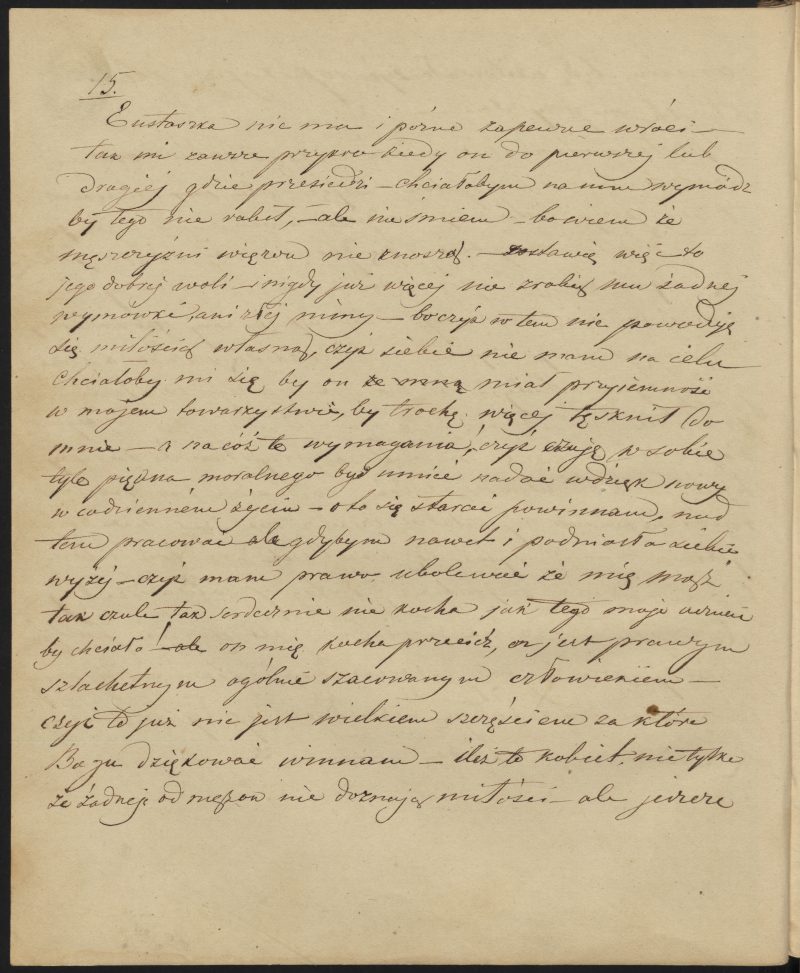 15.
Eustaszka nie ma i późno zapewne wróci –
tak mi zawsze przykro kiedy on do pierwszej lub
drugiej gdzie przesiedzi – chciałabym na nim wymódz
by tego nie robił, – ale nie śmiem – bo wiem że
męszczyźni więzów nie znoszą. – zostawię więc to
jego dobrej woli – i nigdy już więcej nie zrobię mu żadnej
wymówki, ani złej miny – bo czyż w tem nie powoduję
się miłością własną, czyż siebie nie mam na celu
Chciałoby mi się by on ze mną miał przyjemność
w mojem towarzystwie, by trochę więcej tęsknił do
mnie – a na cóż te wymagania, czyż czuję w sobie
tyle piękna moralnego by umieć nadać wdzięk nowy
w codzienném życiu – oto się starać powinnam, nad
tem pracować ale gdybym nawet i podniosła siebie
wyżej – czyż mam prawo ubolewać że mię mąż
tak czule tak serdecznie nie kocha jak tego moje uczucie
by chciało! – ale on mię kocha przecież, on jest prawym
szlachetnym ogólnie szacowanym człowiekiem –
czyż to już nie jest wielkiem szczęściem za które
Bogu dziękować winnam – ileż to kobiet, nie tylko
że żadnej od mężów nie doznają miłości – ale jeszcze